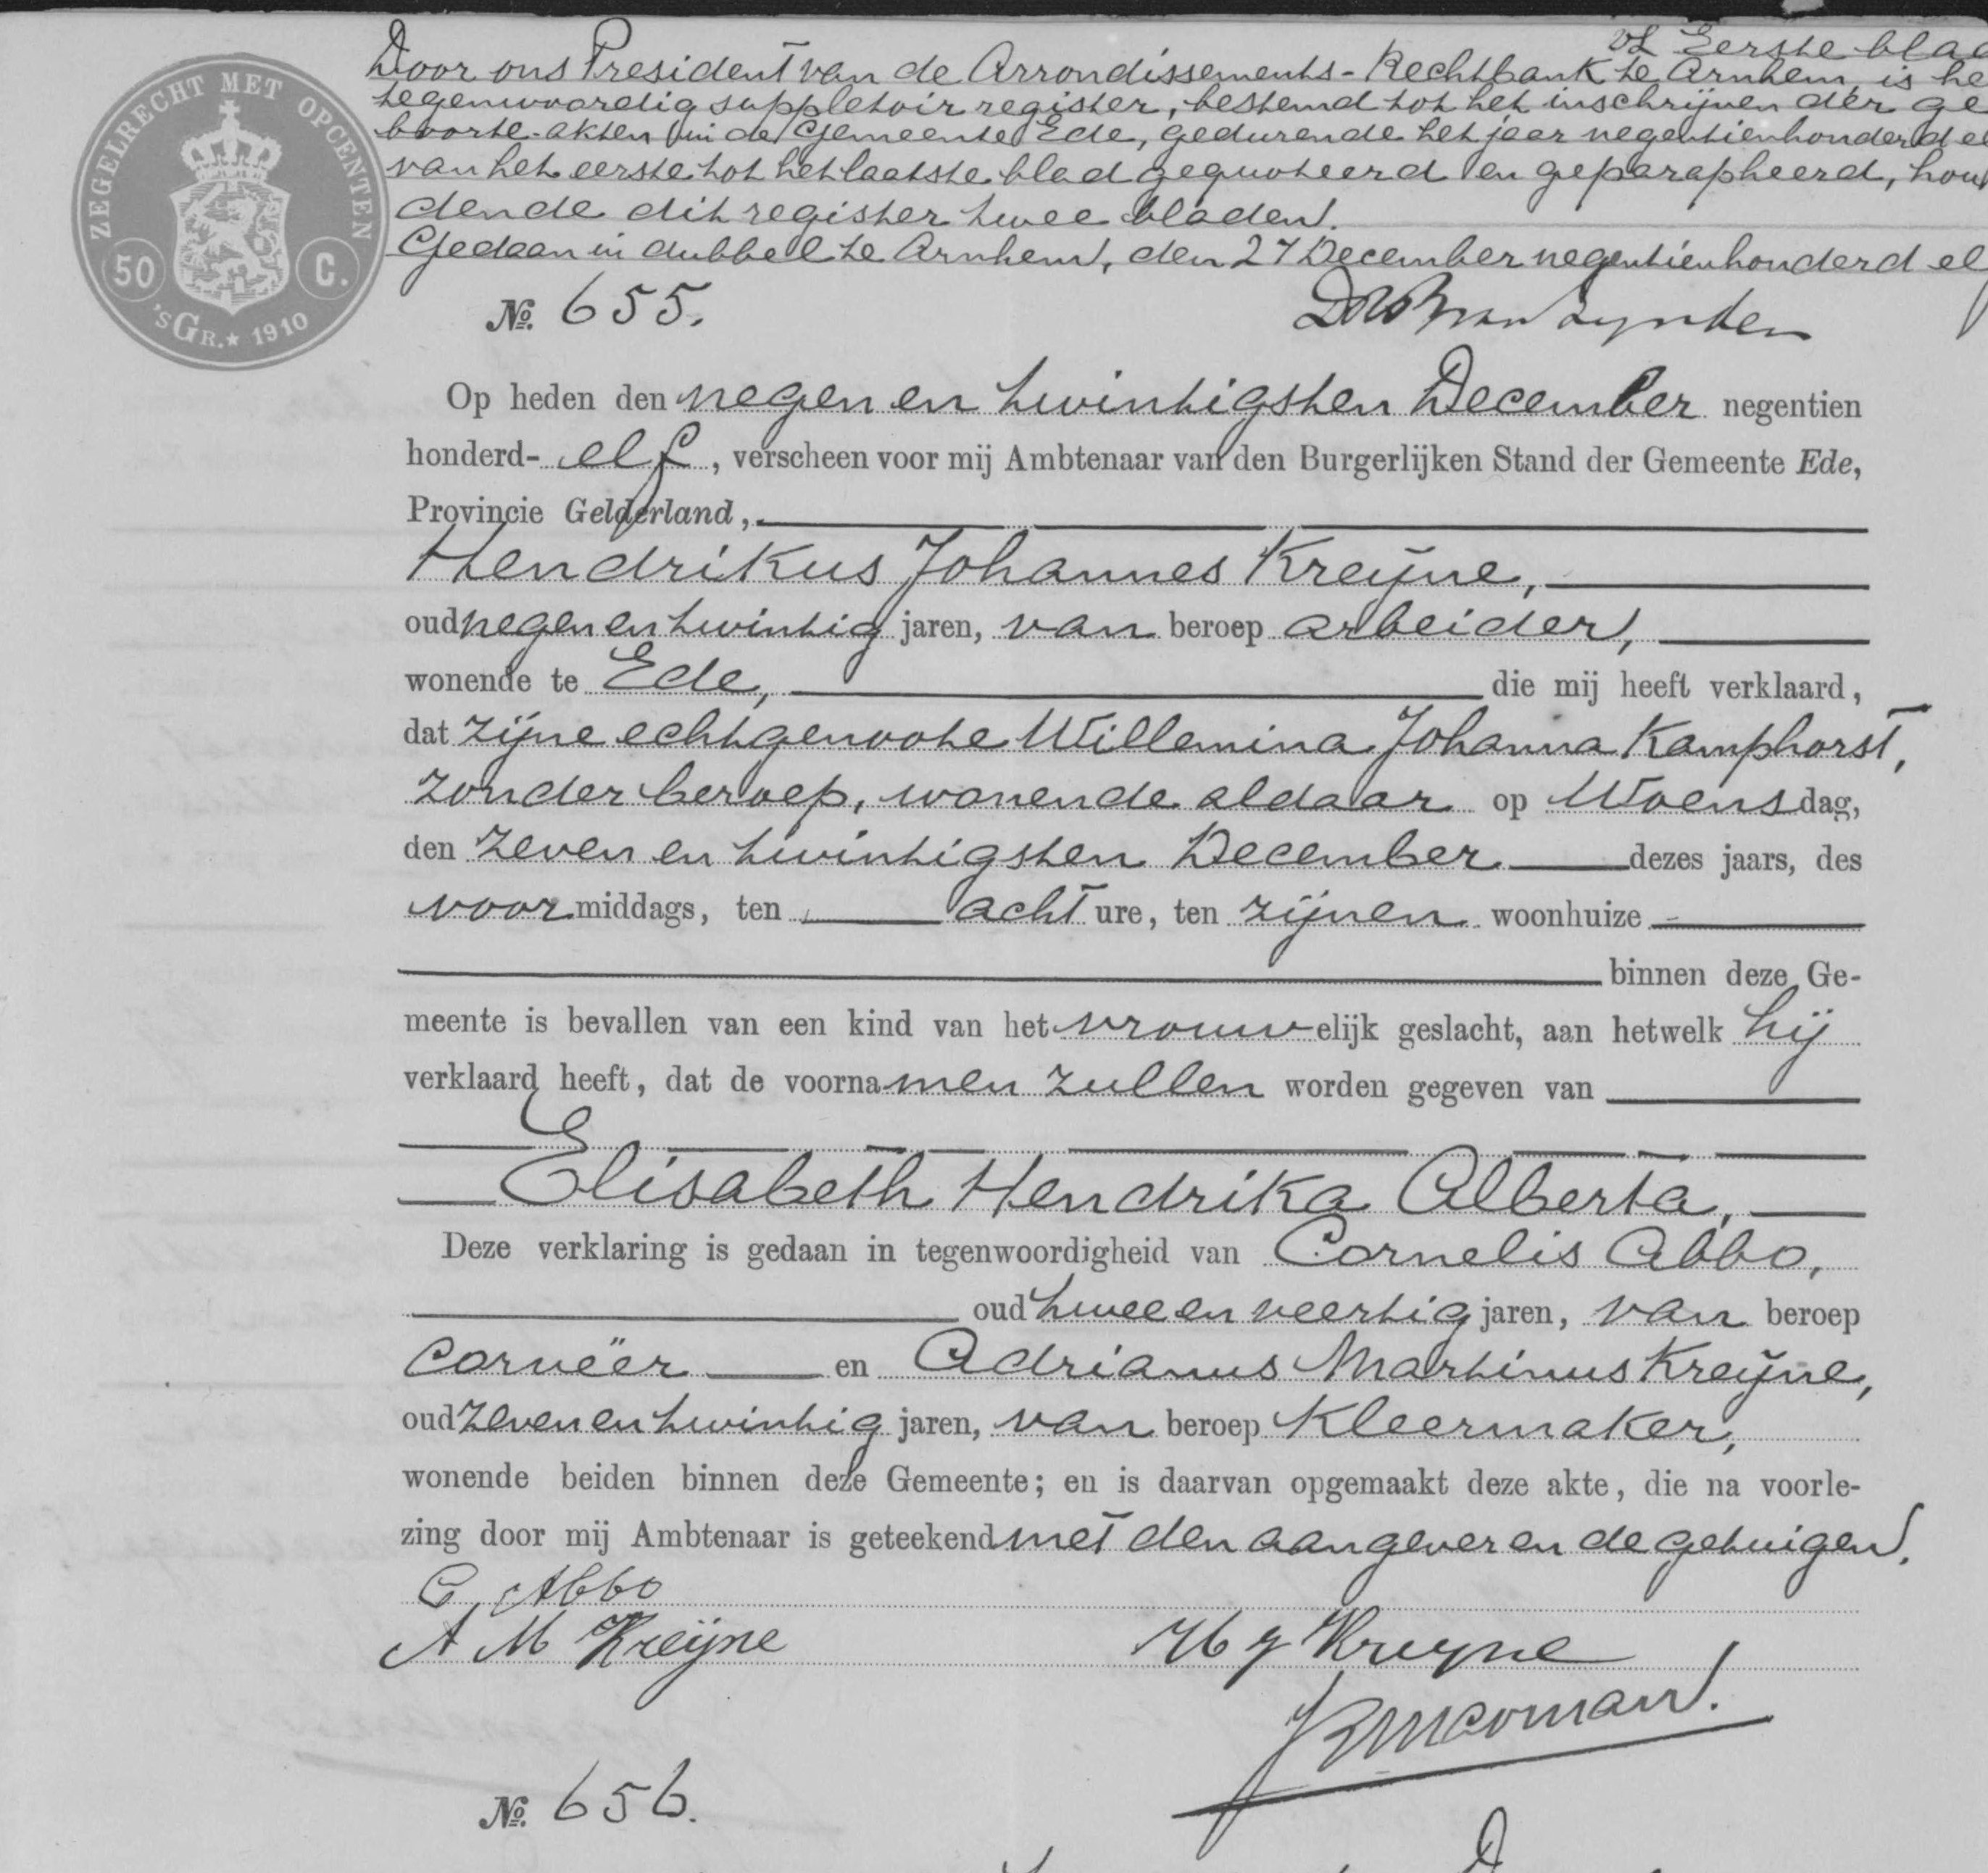 Eerste blad
Door ons President van de Arrondissements-Rechtbank te Arnhem, is he
tegenwoordig suppletoir register, bestemd tot het inschrijven der ge
boorte-akten in de Gemeente Ede, gedurende het jaar negentienhonderd el
van het eerste tot het laatste blad gequoteerd en geparapheerd, hou
dende dit register twee bladen.
Gedaan in dubbel te Arnhem, den 27 December negentienhonderd elf
ZEGELRECHT MET OPCENTEN
50 C.
'sGR.★ 1910
No. 655.
van Lynden
Op heden den negen en twintigsten December negentien
honderd- elf, verscheen voor mij Ambtenaar van den Burgerlijken Stand der Gemeente Ede,
Provincie Gelderland,
Hendrikus Johannes Kreijne,
oud negen en twintig jaren, van beroep arbeider,
wonende te Ede, die mij heeft verklaard,
dat zijne echtgenoote Willemina Johanna Kamphorst,
zonder beroep, wonende aldaar op Woensdag,
den zeven en twintigsten December dezes jaars, des
voormiddags, ten acht ure, ten zijnen woonhuize
binnen deze Ge-
meente is bevallen van een kind van het vrouwelijk geslacht, aan hetwelk hij
verklaard heeft, dat de voornamen zullen worden gegeven van
Elisabeth Hendrika Alberta,
Deze verklaring is gedaan in tegenwoordigheid van Cornelis Abbo,
oud twee en veertig jaren, van beroep
carneër en Adrianus Martinus Kreijne,
oud zeven en twintig jaren, van beroep kleermaker,
wonende beiden binnen deze Gemeente; en is daarvan opgemaakt deze akte, die na voorle-
zing door mij Ambtenaar is geteekend met den aangever en de getuigen.
C. Abbo
A M Kreijne H J Kreyne
No. 656.